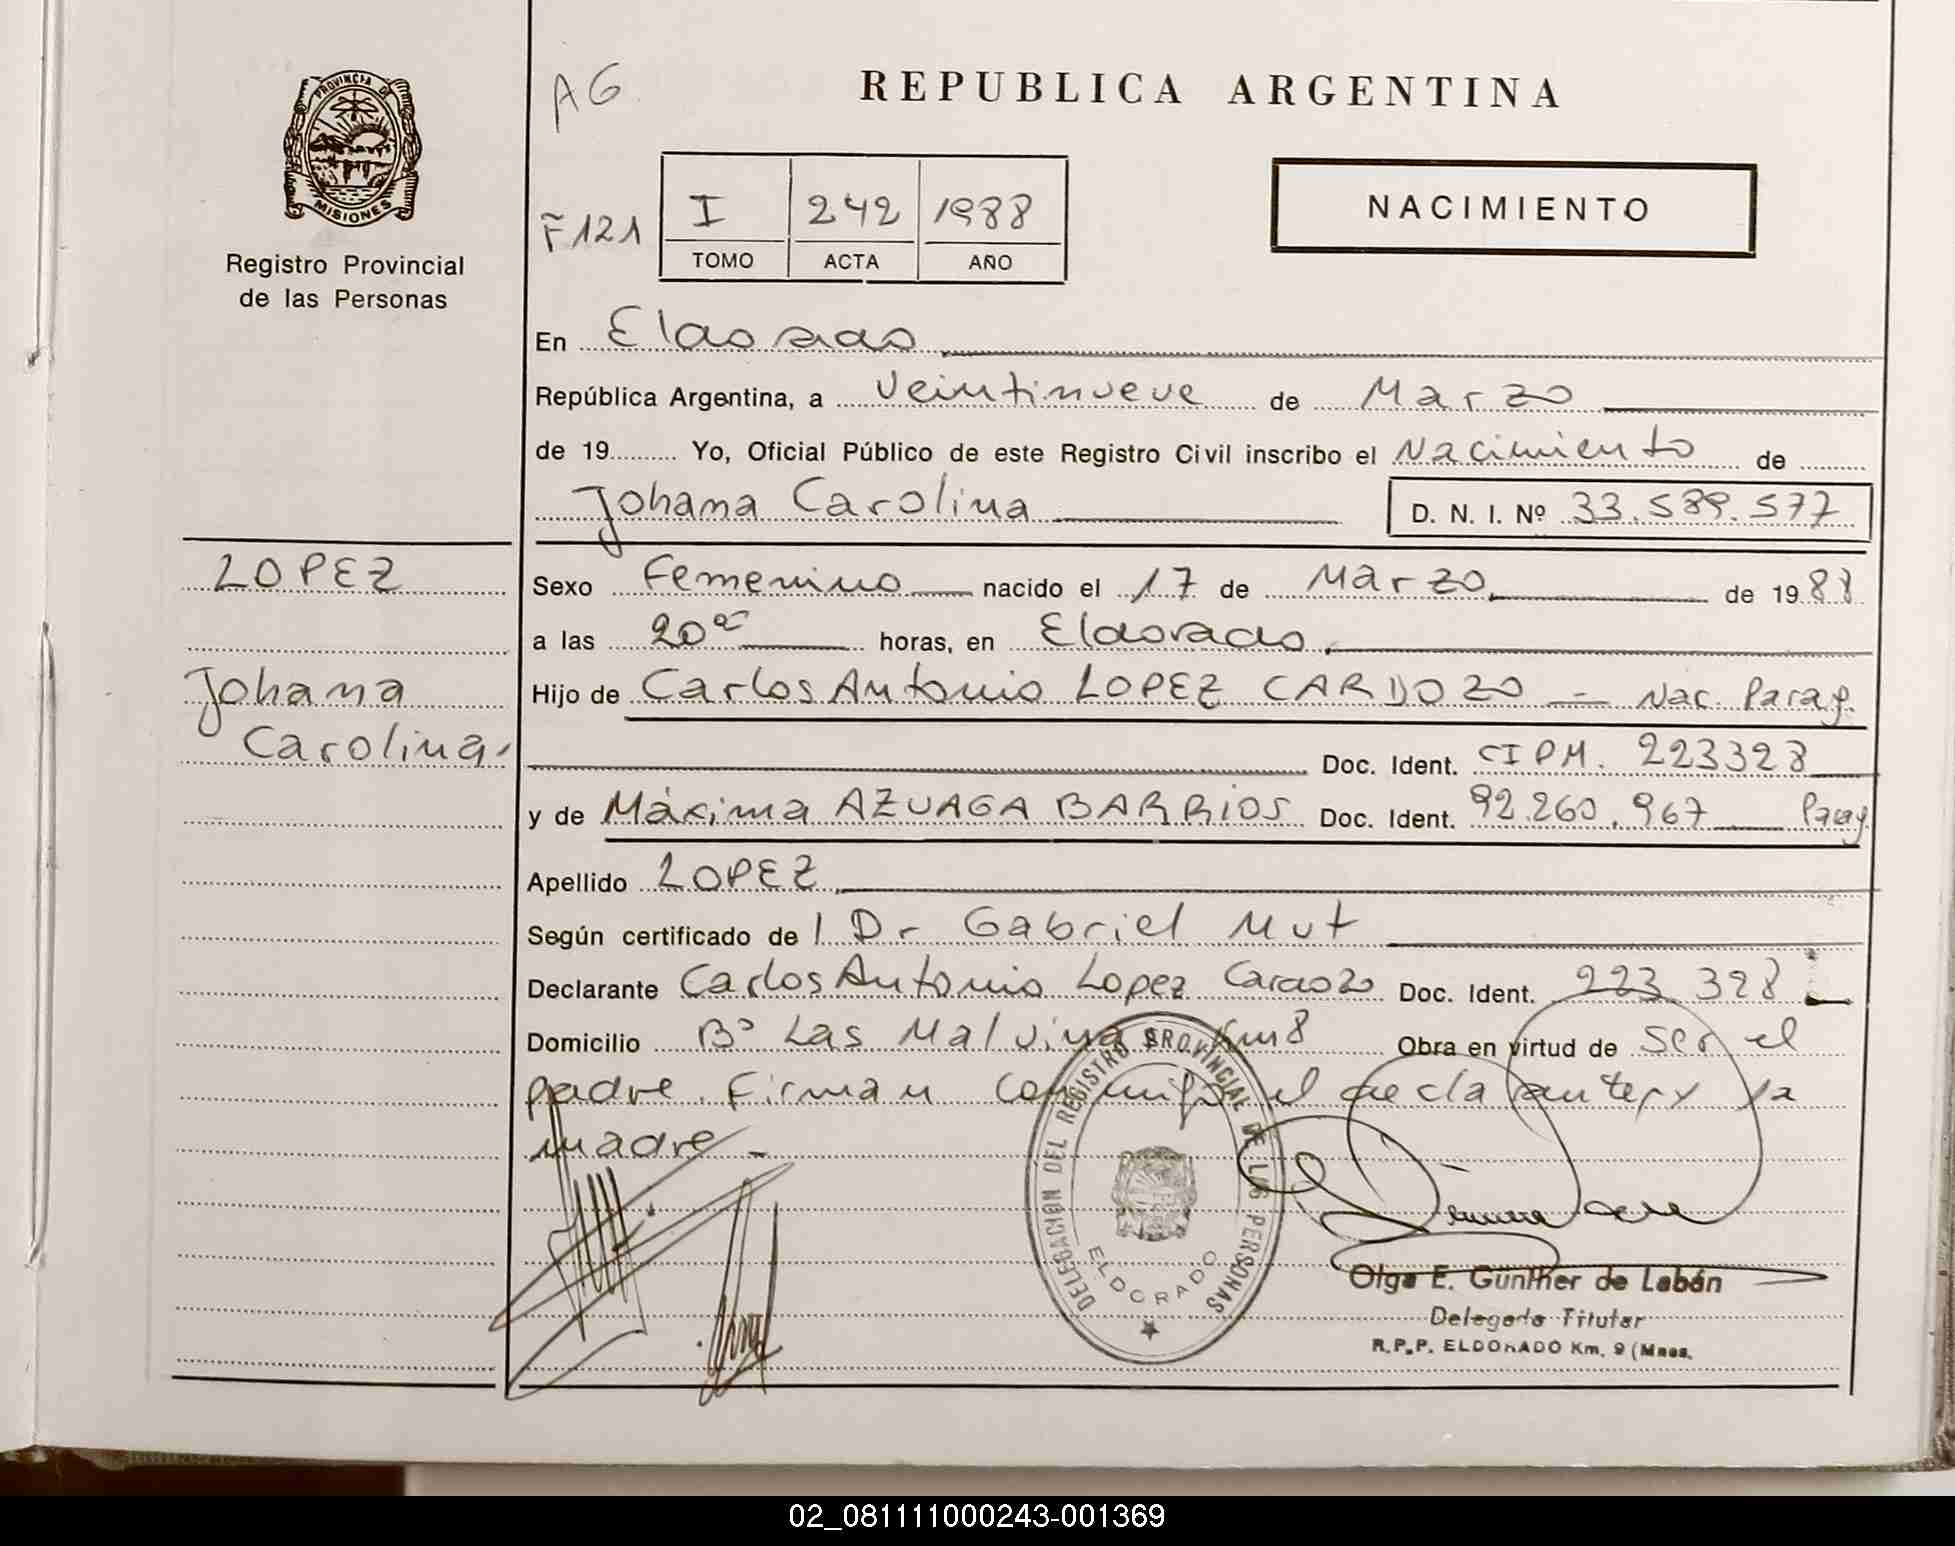 PROVINCIA DE
MISIONES
Registro Provincial
de las Personas
AG
REPUBLICA ARGENTINA
F 121
I 242 1988
TOMO ACTA AÑO
NACIMIENTO
En Eldorado
República Argentina, a Veintinueve de Marzo
de 19 Yo, Oficial Público de este Registro Civil inscribo el Nacimiento de
Johana Carolina D. N. I. Nº 33.589.577
LOPEZ
Sexo Femenino nacido el 17 de Marzo de 1988
a las 20 horas, en Eldorado
Johana
Carolina
Hijo de Carlos Antonio LOPEZ CARDOZO — Nac. Parag.
Doc. Ident. CIPM. 223328
y de Máxima AZUAGA BARRIOS Doc. Ident. 92.260.967 Parag
Apellido LOPEZ
Según certificado de l Dr Gabriel Mut
Declarante Carlos Antonio Lopez Cardozo Doc. Ident. 223 328
Domicilio Bº Las Malvinas Km 8 Obra en virtud de ser el
padre. Firman conmigo el declarante y la
madre -
DELEGACION DEL REGISTRO PROVINCIAL DE LAS PERSONAS
ELDORADO
Olga E. Günther de Labán
Delegada Titular
R.P.P. ELDORADO Km. 9 (Mnes.
02_081111000243-001369